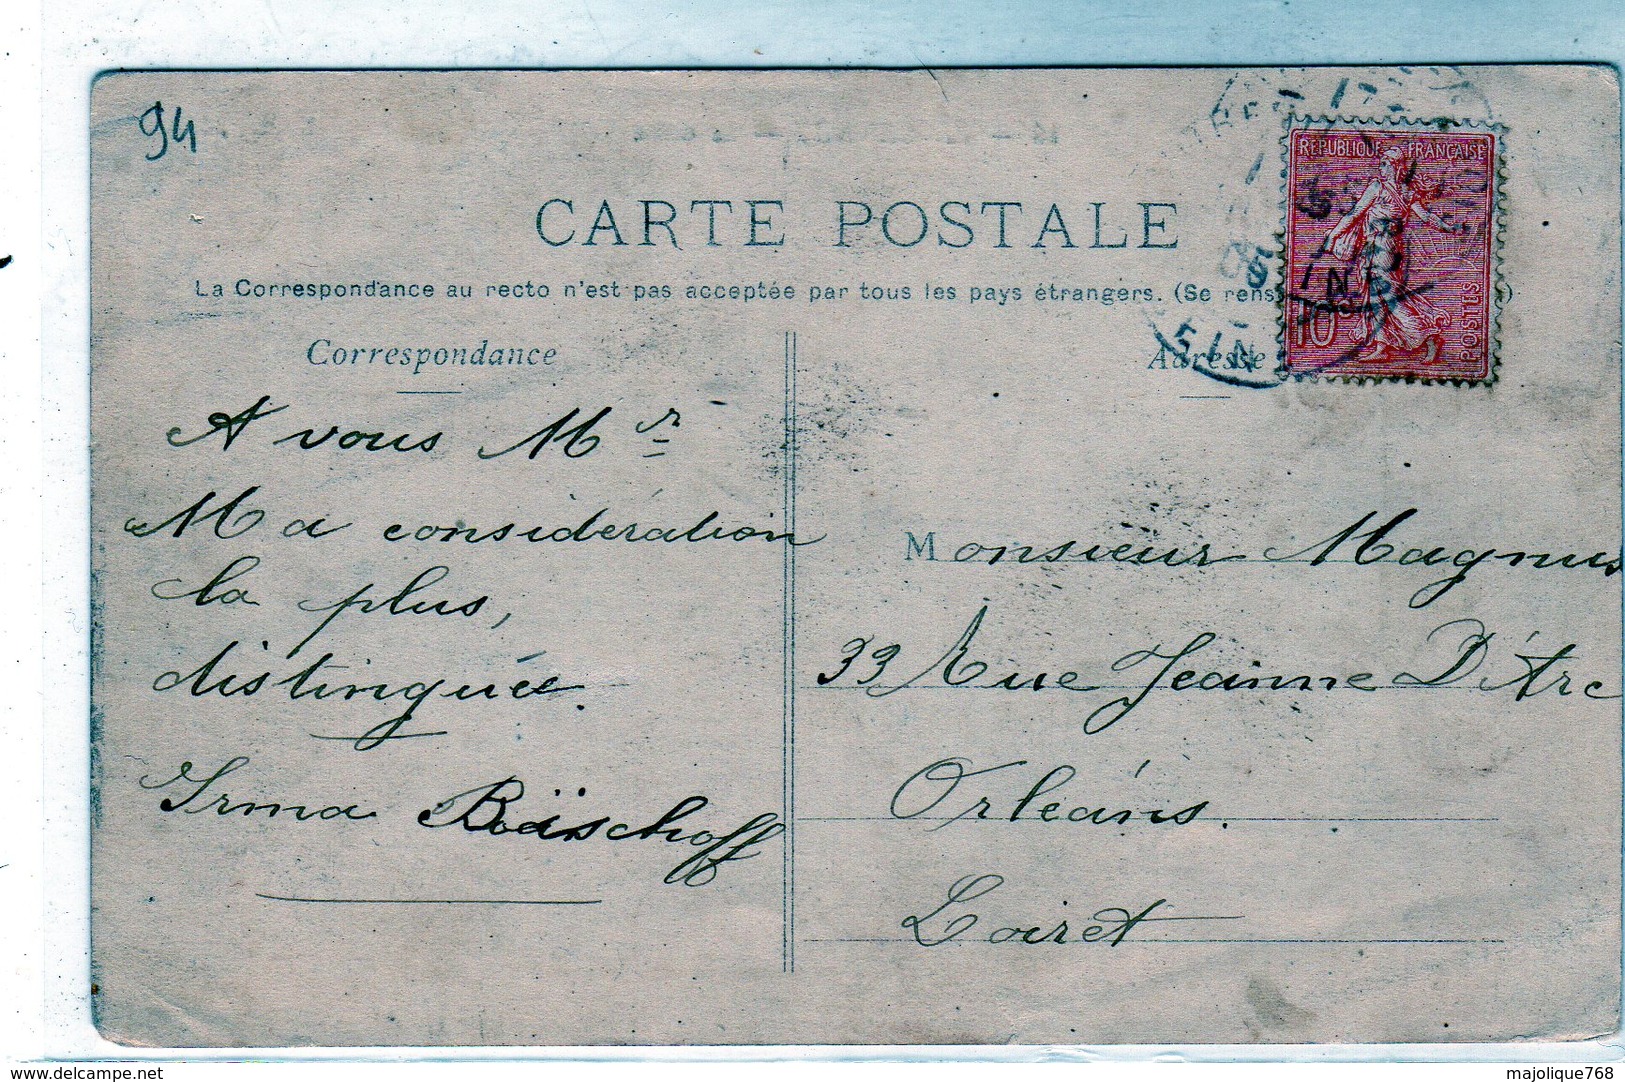 94
CARTE POSTALE
La Correspondance au recto n'est pas acceptée par tous les pays étrangers. (Se rens
REPUBLIQUE FRANÇAISE
10
POSTES
Correspondance
A vous Mr
Ma considération
la plus,
distinguée.
Irma Boïschoff
Adresse
Monsieur Magnus
33 Rue Jeanne D'Arc
Orléans.
Loiret
www.delcampe.net
majolique768